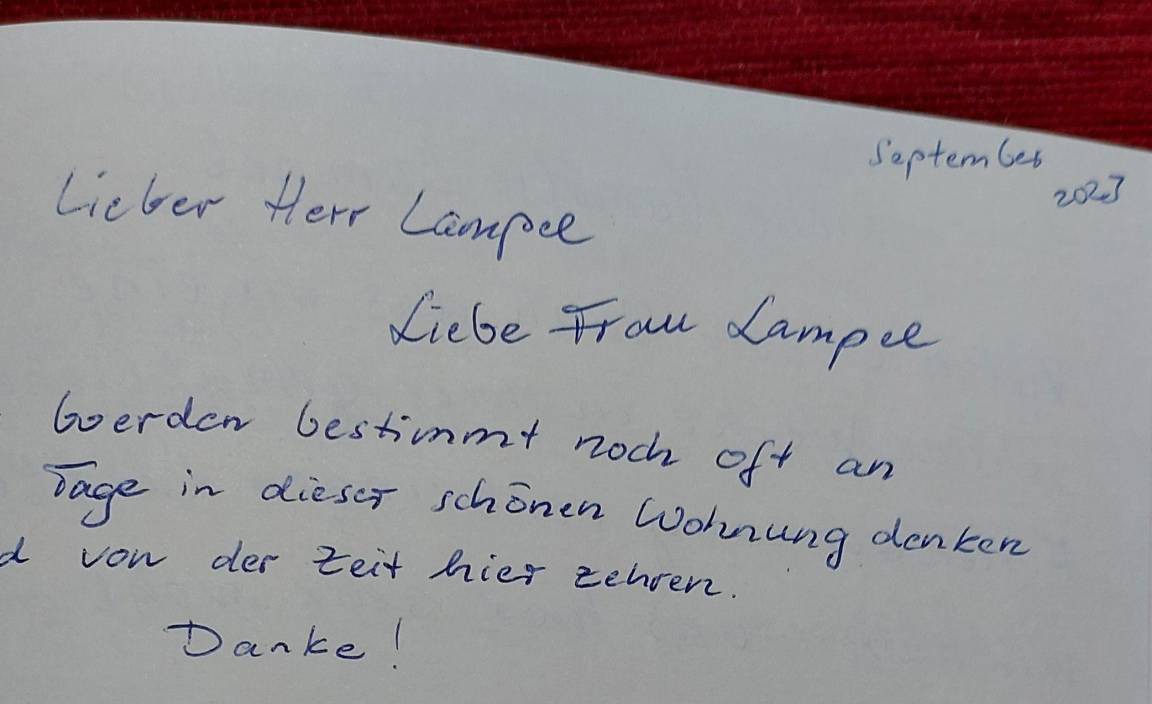 September
2023
Lieber Herr Lampel
Liebe Frau Lampel
werden bestimmt noch oft an
Tage in dieser schönen Wohnung denken
d von der Zeit hier zehren.
Danke!